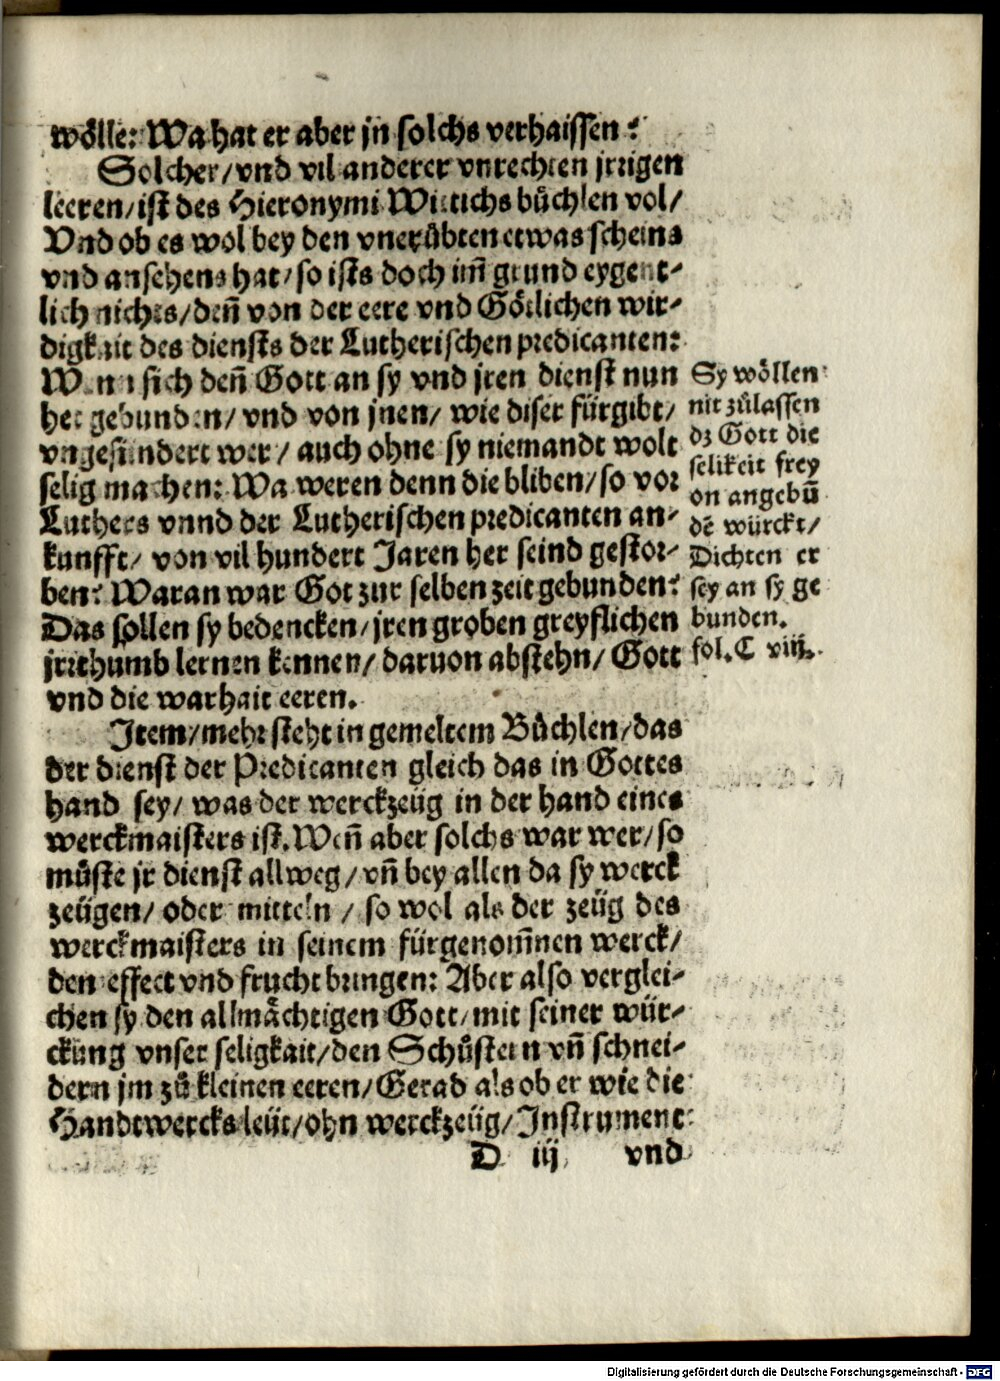 wölle: Wa hat er aber jn solchs verhaissen?
Solcher/ vnd vil anderer vnrechten jrrigen
leeren/ ist des Hieronymi Wittichs bůchlen vol/
Vnd ob es wol bey den vnerůbten etwas scheins
vnd ansehens hat/ so ists doch im̃ grund eygent-
lich nichts/ deñ von der eere vnd Götlichen wir-
digkait des diensts der Lutherischen predicanten:
Wann sich deñ Gott an sy vnd jren dienst nun
het gebunden/ vnd von jnen/ wie diser fürgibt/
vngesündert wer/ auch ohne sy niemandt wolt
selig machen: Wa weren denn die bliben/ so vor
Luthers vnnd der Lutherischen predicanten an-
kunfft/ von vil hundert Jaren her seind gestor-
ben? Waran war Got zur selben zeit gebunden?
Das sollen sy bedencken/ jren groben greyflichen
jrrthumb lernen kennen/ daruon abstehn/ Gott
vnd die warhait eeren.
Sy wöllen
nit zůlassen
dz Gott die
selikeit frey
on angebũ
dẽ würckt/
Dichten er
sey an sy ge
bunden.
fol. C viij.
Item/ mehr steht in gemeltem Bůchlen/ das
der dienst der Predicanten gleich das in Gottes
hand sey/ was der werckzeüg in der hand eines
werckmaisters ist. Weñ aber solchs war wer/ so
můste jr dienst allweg/ vñ bey allen da sy werck
zeügen/ oder mitteln/ so wol als der zeüg des
werckmaisters in seinem fürgenom̃nen werck/
den effect vnd frucht bringen: Aber also verglei-
chen sy den allmächtigen Gott/ mit seiner wür-
ckung vnser seligkait/ den Schůstern vñ schnei-
dern jm zů kleinen eeren/ Gerad als ob er wie die
Handtwercks leüt/ ohn werckzeüg/ Instrument
D iij vnd
Digitalisierung gefördert durch die Deutsche Forschungsgemeinschaft - DFG